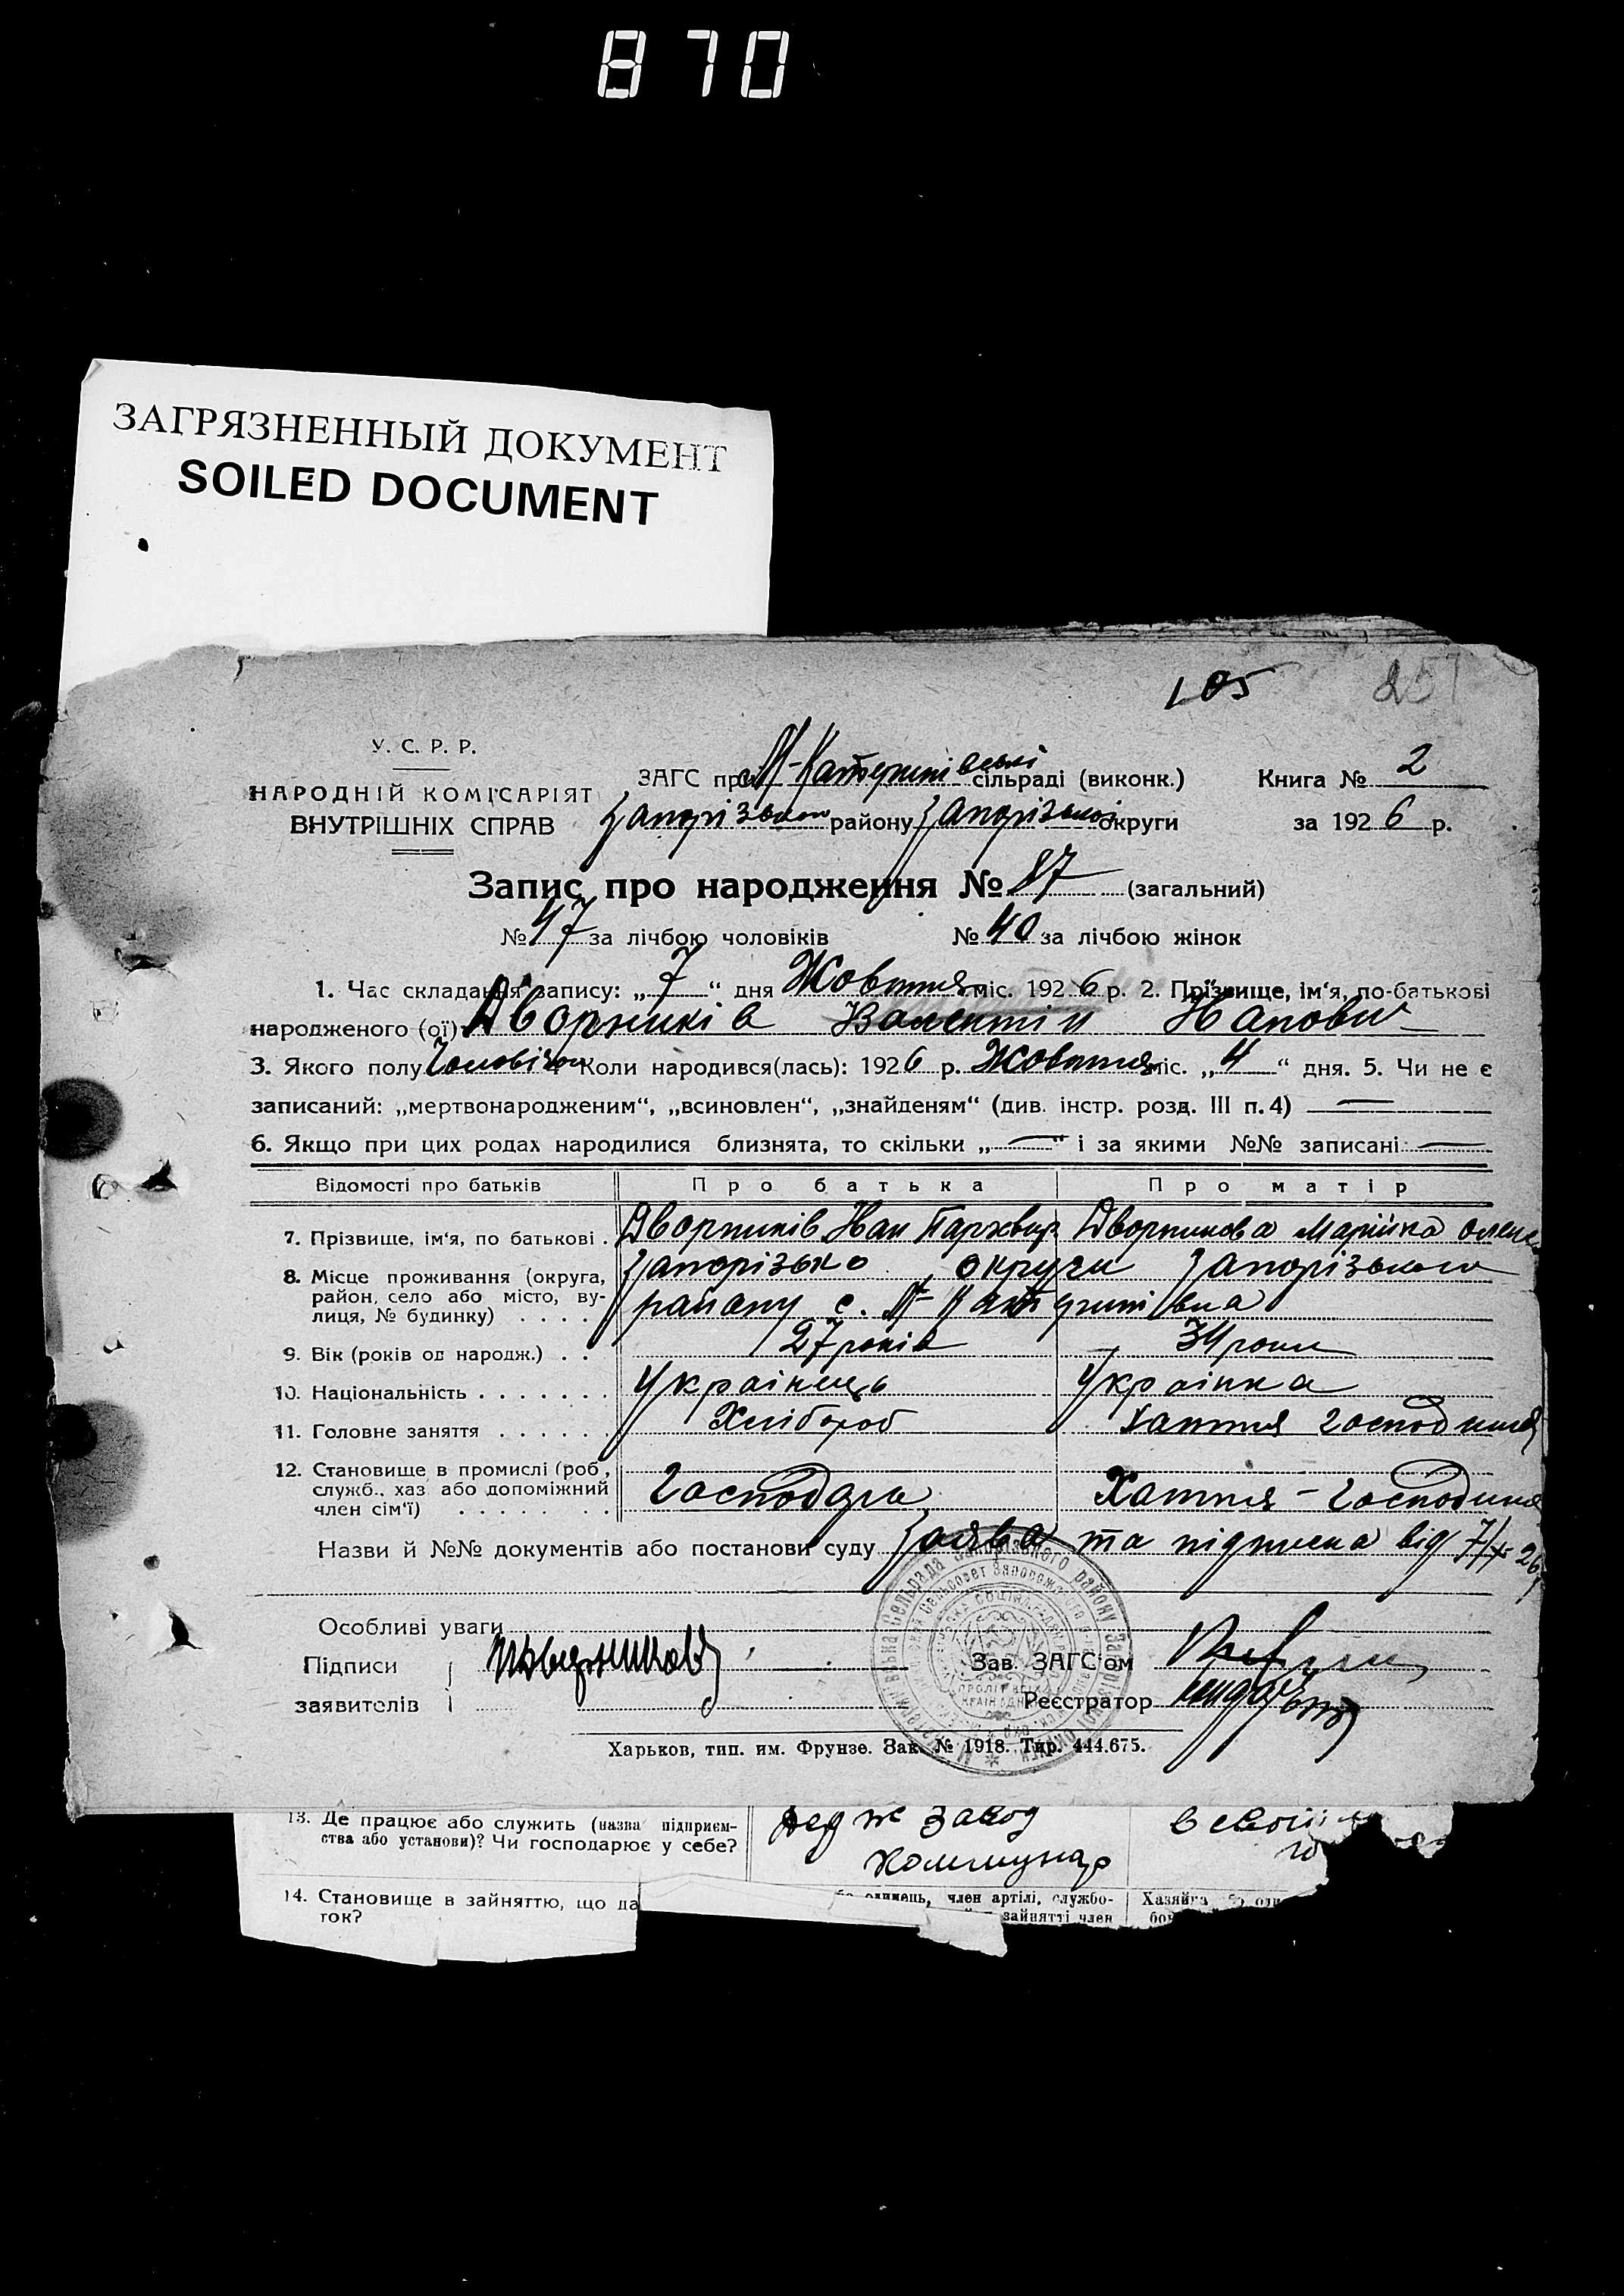 870
ЗАГРЯЗНЕННЫЙ ДОКУМЕНТ
SOILED DOCUMENT
105
251
У. С. Р. Р.
НАРОДНІЙ КОМІСАРІЯТ
ВНУТРІШНІХ СПРАВ
ЗАГС при М-Катеринівські сільраді (виконк.)
Запорізького району Запорізької округи
Книга № 2
за 1926 р.
Запис про народження № 87 (загальний)
№ 47 за лічбою чоловіків № 40 за лічбою жінок
1. Час складання запису: „7“ дня Жовтня міс. 1926 р. 2. Прізвище, ім‘я, по-батькові
народженого (ої) Дворників Валентін Іванович
3. Якого полу Чоловічого 4 Коли народився(лась): 1926 р. Жовтня міс. „4“ дня. 5. Чи не є
записаний: „мертвонародженим“, „всиновлен“, „знайденям“ (див. інстр. розд. III п. 4) —
6. Якщо при цих родах народилися близнята, то скільки „—“ і за якими №№ записані —
Відомості про батьків Про батька Про матір
7. Прізвище, ім‘я, по батькові . Дворників Іван Дворникова Марійка
8. Місце проживання (округа, район, село або місто, вулиця, № будинку) . . . . Запорізько округи Запорізького
району с. М-Катеринівка
9. Вік (років од народж.) . . 27 років 34 роки
10. Національність . . . . . . . Українець Українка
11. Головне заняття . . . . . . Хлібороб Хатня господиня
12. Становище в промислі (роб., служб., хаз. або допоміжний член сім‘ї) . . . . . . . . Господарь Хатня - господиня
Назви й №№ документів або постанови суду Заява та підписка від 7/X-26
Особливі уваги
Підписи
заявителів
Зав. ЗАГС‘ом
Реєстратор
Харьков, тип. им. Фрунзе. Зак. № 1918. Тир. 444.675.
13. Де працює або служить (назва підприєм-
ства або установи)? Чи господарює у себе?
завод
Коммунар
в своїй
14. Становище в зайняттю, що да
ток?
одинець, член артілі, службо-
зайнятті член
Хазяйка